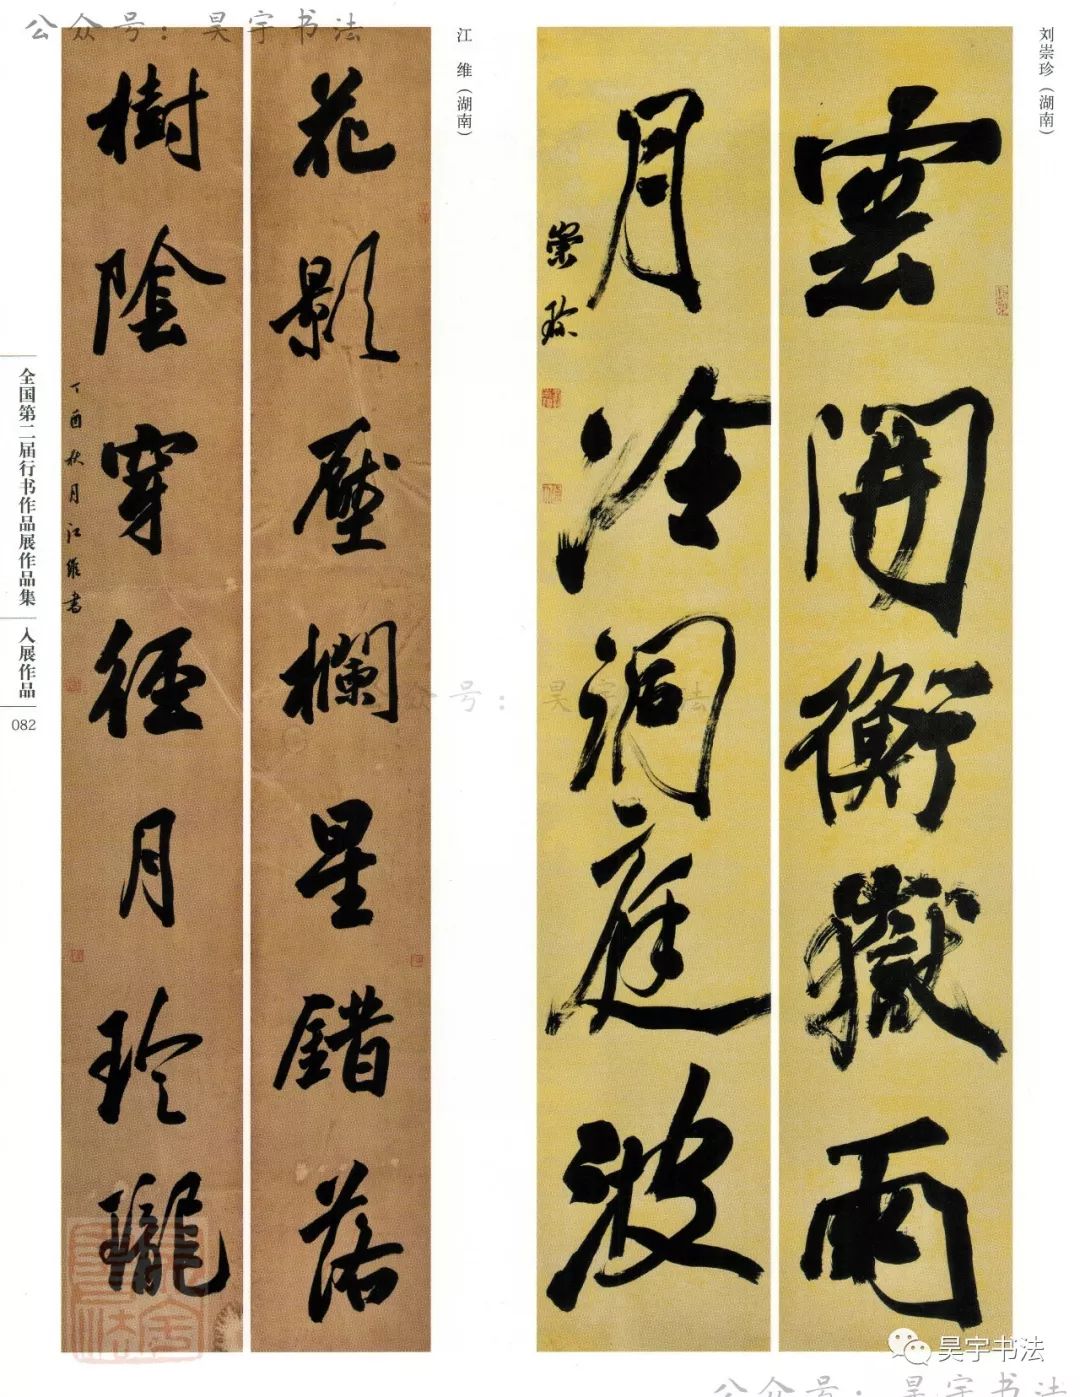 公众号：昊宇书法
刘崇珍（湖南）
雲開衡嶽雨
月冷洞庭波
崇珍
江维（湖南）
花影壓欄星錯落
樹陰穿徑月玲瓏
丁酉秋月江維書
全国第二届行书作品展作品集
入展作品
082
公众号：昊宇书法
昊宇书法
公众号：昊宇书法